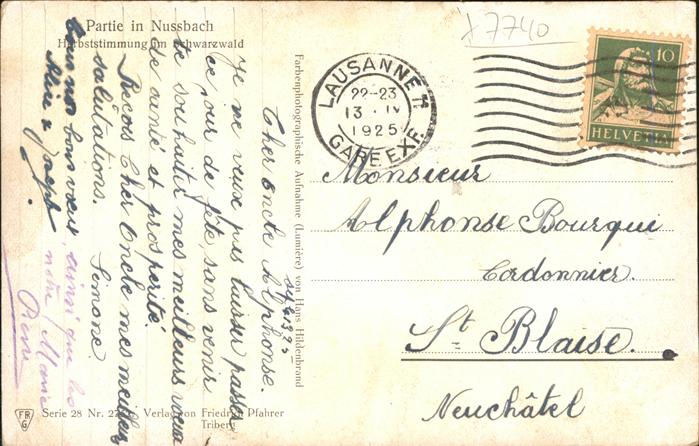 Partie in Nussbach
Herbststimmung im Schwarzwald
x 7740
LAUSANNE 1
22-23
13. IV
1925
GARE EXP.
10
HELVETIA
Farbenphotographische Aufnahme (Lumière) von Hans Hildenbrand
Monsieur
Alphonse Bourqui
Cordonnier.
St Blaise.
Neuchâtel
1925
Cher Oncle Alphonse.
Je ne veux pas laisser passer
ce jour de fête, sans venir
te souhaiter mes meilleurs vœux
de santé et prospérité.
Reçois Cher Oncle mes meilleures
salutations. Simone.
nos bons vœux, ainsi que les
Alice & Joseph. notre Marie
Pierre
FR
G
Serie 28 Nr. Verlag von Friedrich Pfahrer
Triberg